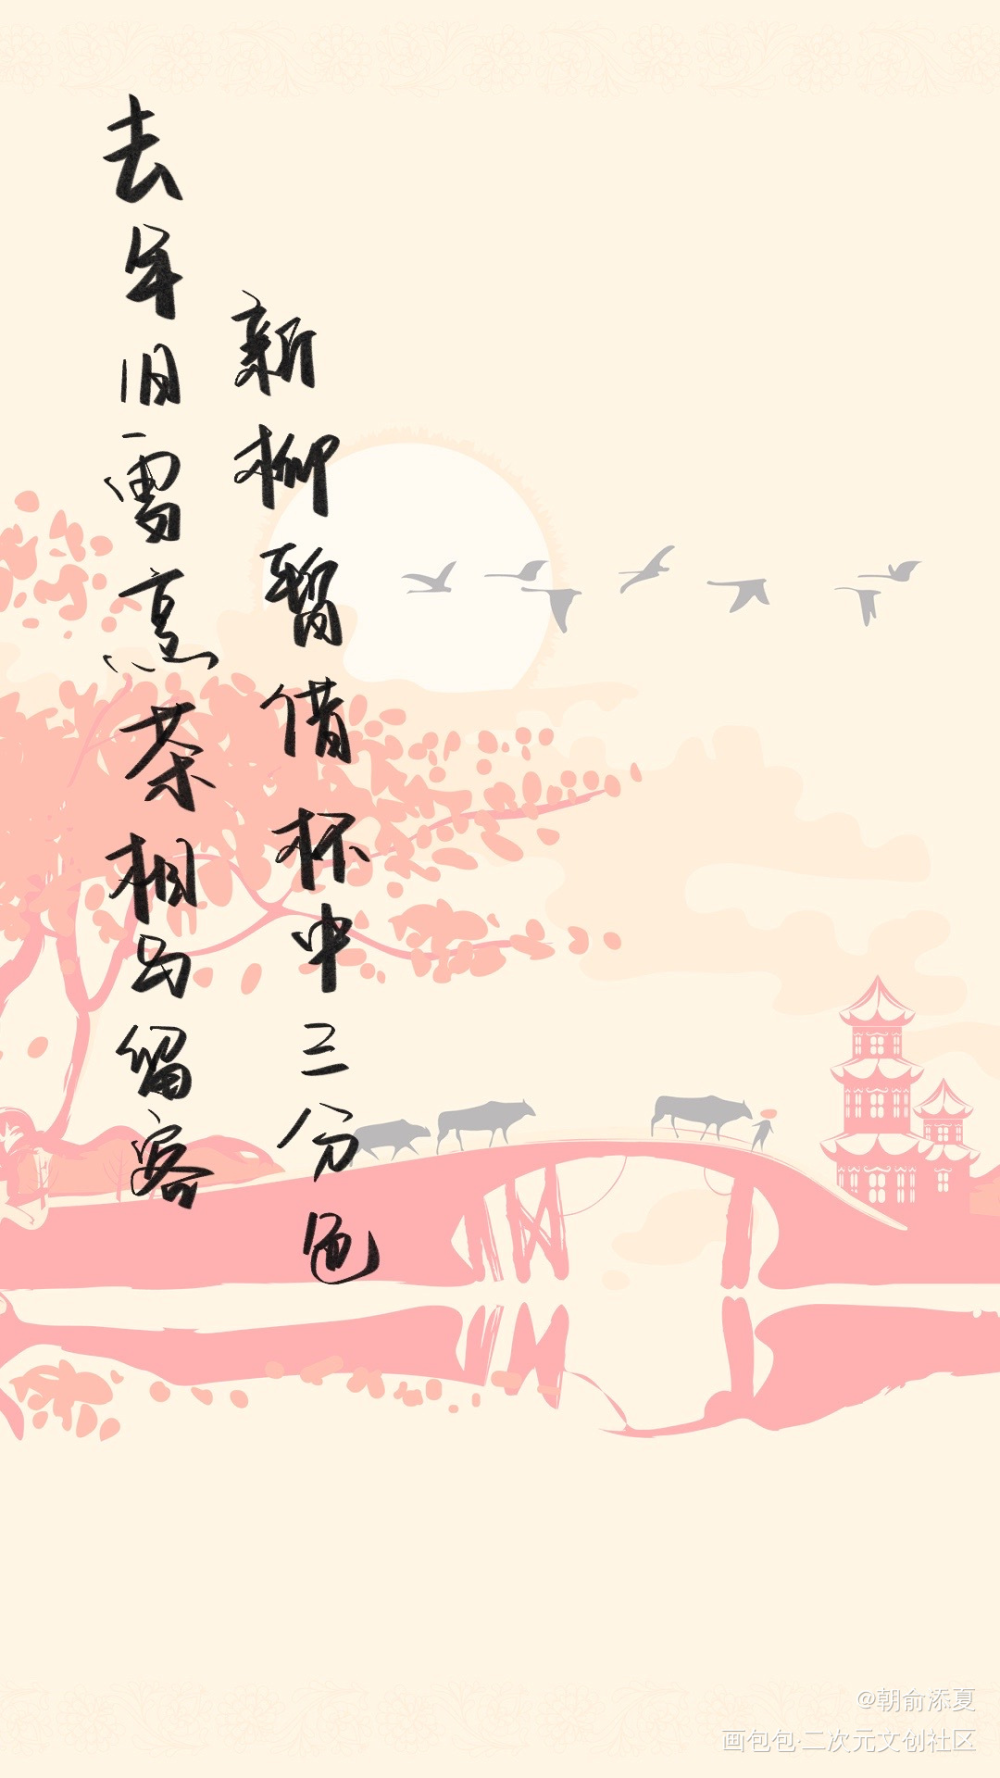 去年旧雪烹茶相与留客
新柳暂借杯中三分色
@朝俞添夏
画包包·二次元文创社区